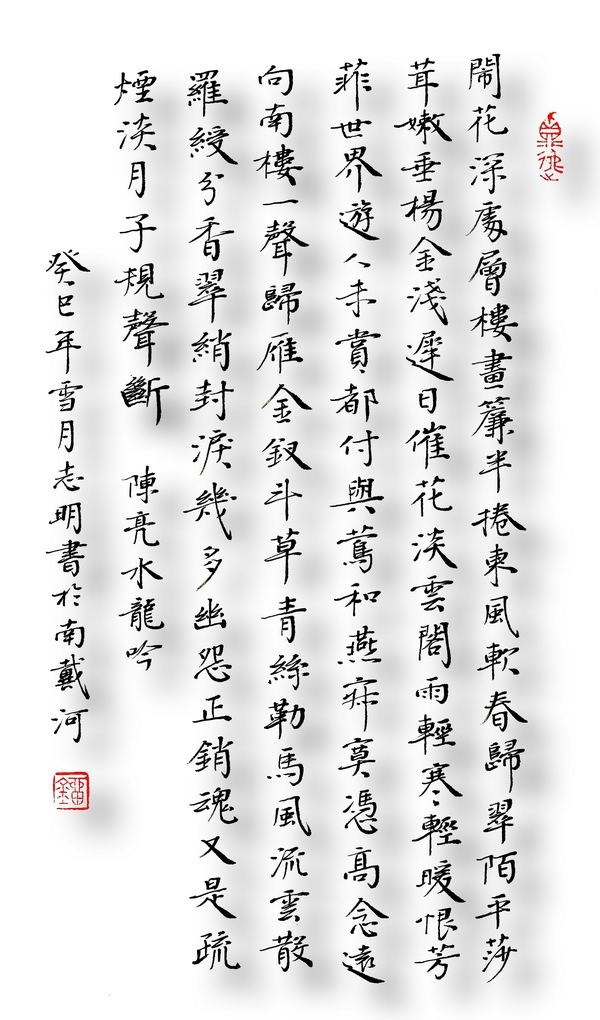 鬧花深處層樓畫簾半捲東風軟春歸翠陌平莎
茸嫩垂楊金淺遲日催花淡雲閣雨輕寒輕暖恨芳
菲世界遊人未賞都付與鶯和燕寂寞憑高念遠
向南樓一聲歸雁金釵斗草青絲勒馬風流雲散
羅綬分香翠綃封淚幾多幽怨正銷魂又是疏
煙淡月子規聲斷 陳亮水龍吟
癸巳年雪月志明書於南戴河